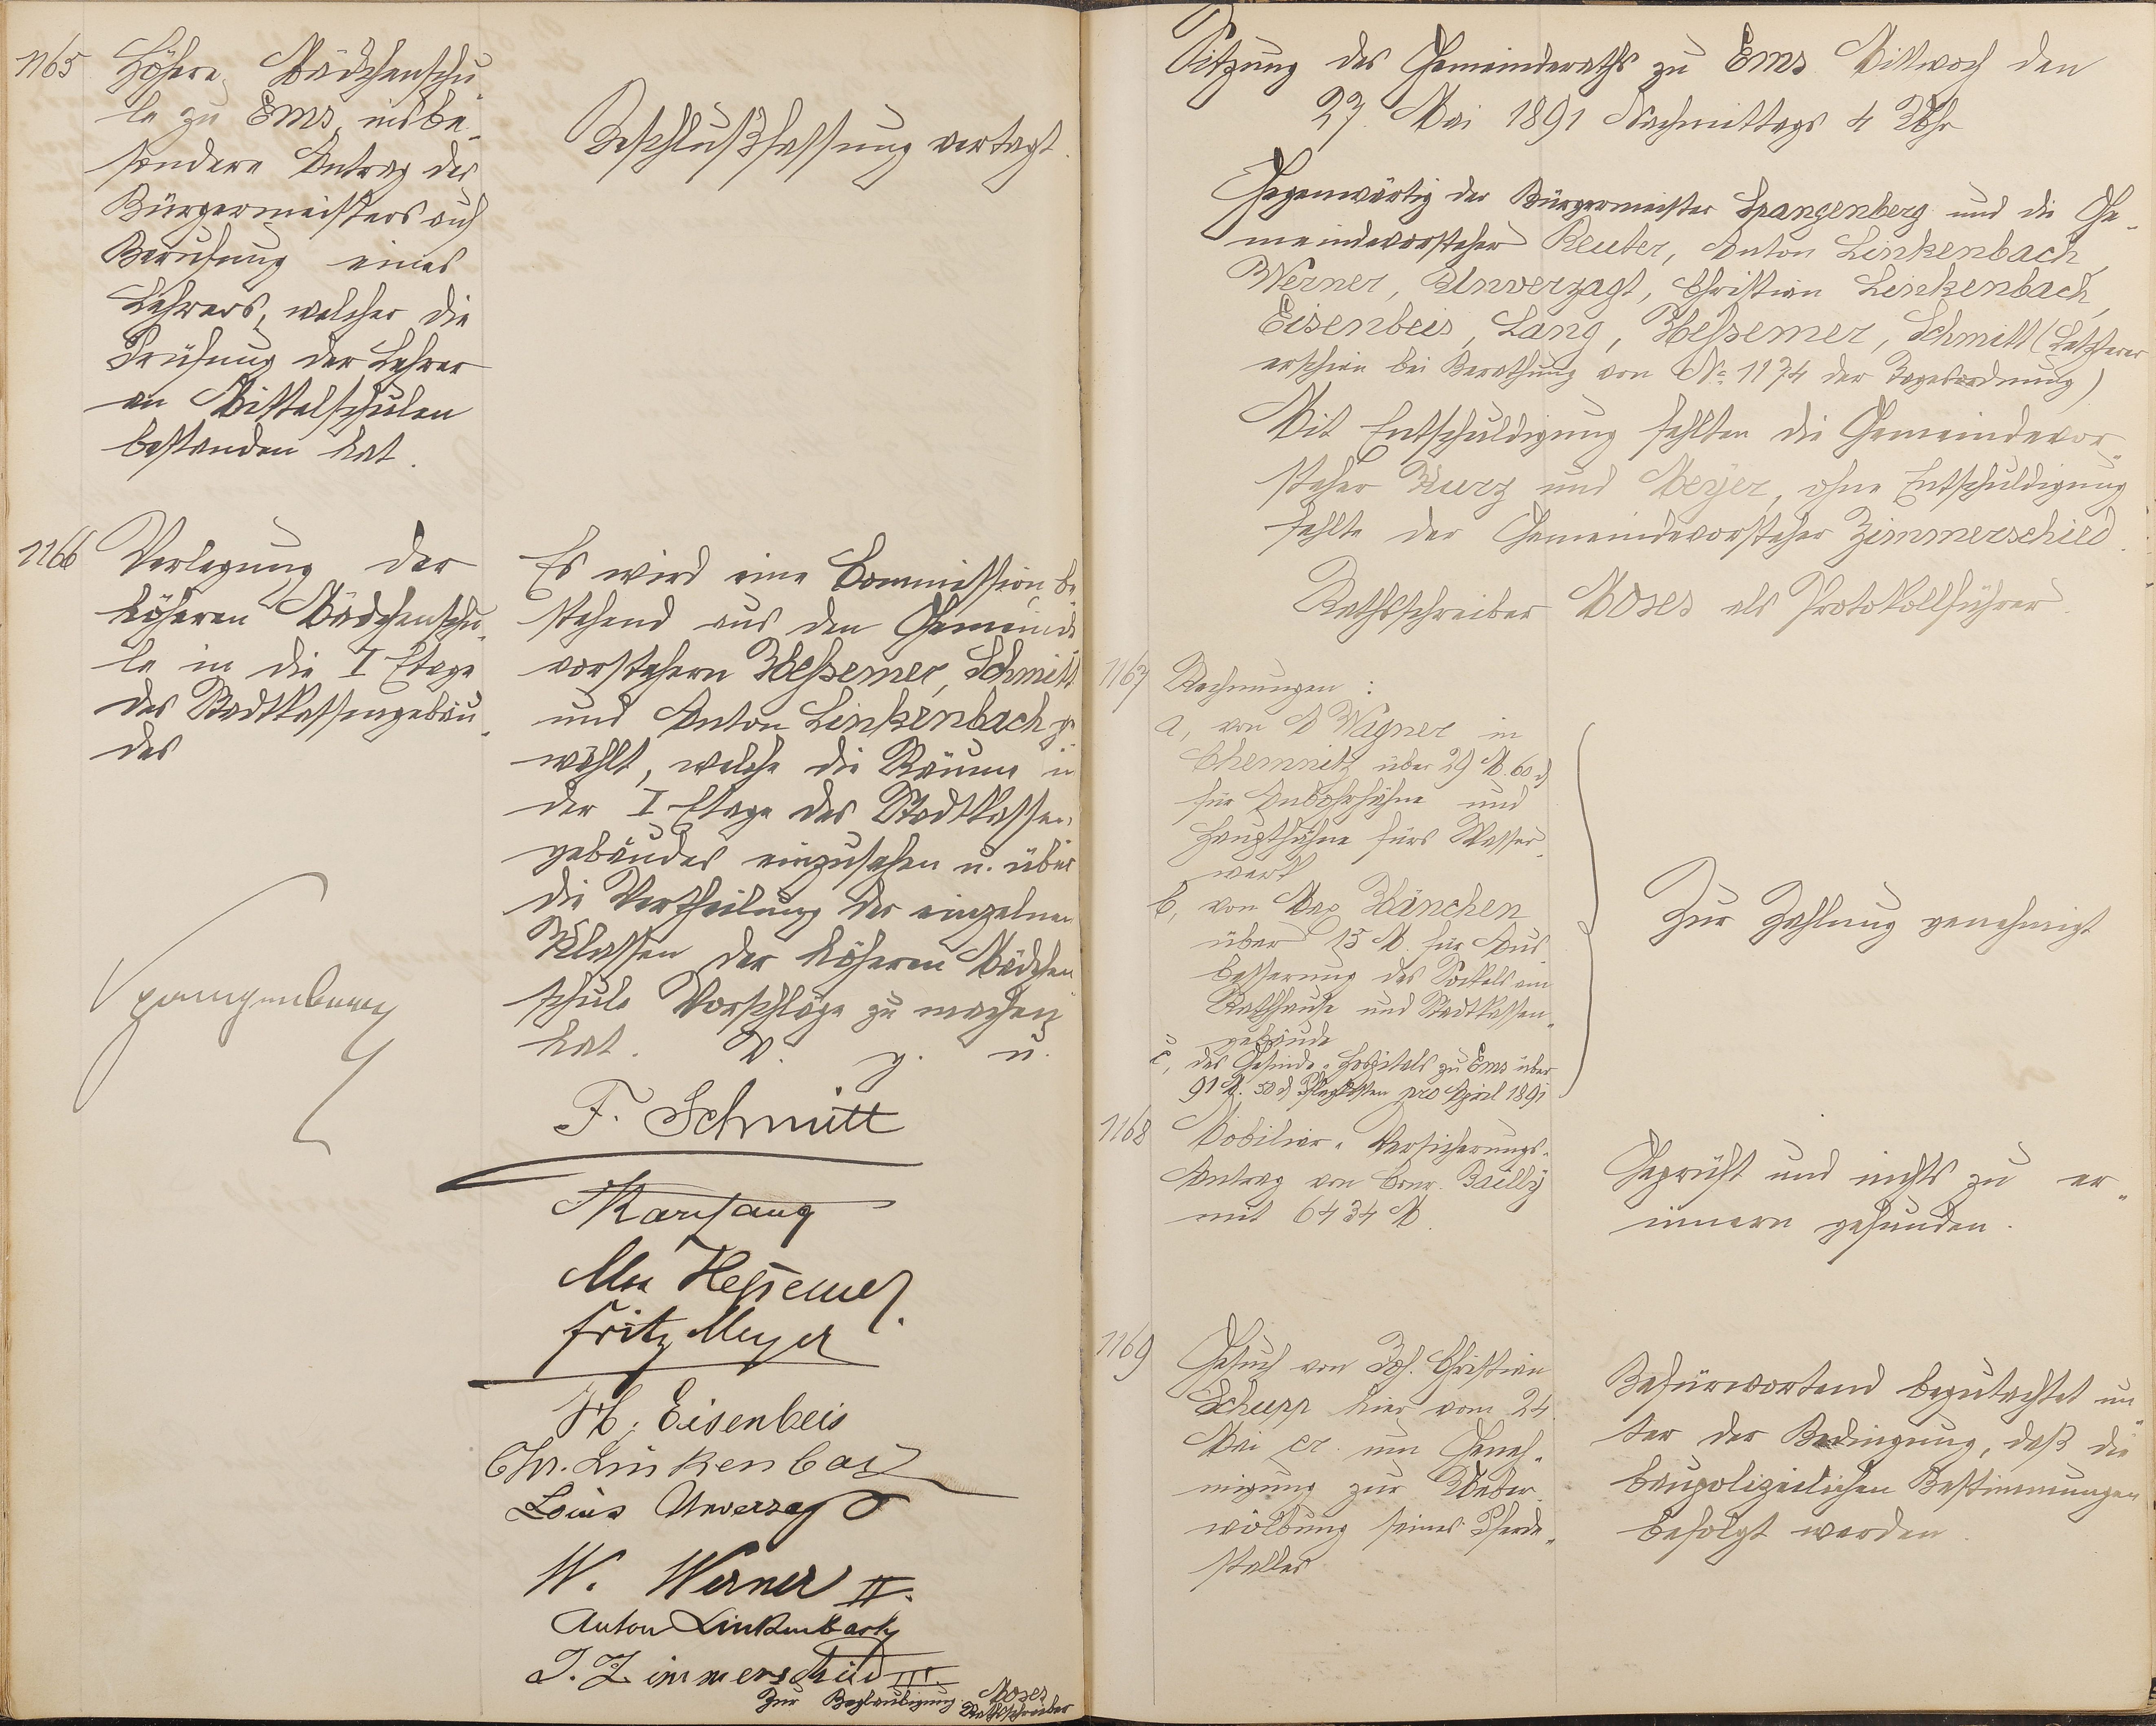 1165
Höhere Mädchenschu„
le zu Ems, insbe„
sondere Antrag des
Bürgermeisters auf
Berufung eines
Lehrers, welcher die
Prüfung der Lehrer
an Mittelschulen
bestanden hat.
Beschlußfassung vertagt.
1166
Verlegung der
höheren Mädchenschu„
le in die I Etage
des Stadtkassengebäu„
des
Es wird eine Commission be
stehend aus den Gemeinde
vorstehern Heßemer, Schmitt
und Anton Linkenbach ge
wählt, welche die Räume in
der I Etage des Stadtkassen„
gebäudes einzusehen u. über
die Vertheilung der einzelnen
Klassen der höheren Mädchen
schule Vorschläge zu machen
hat. V. g. u.
Spangenberg
F. Schmitt
Heßemer
Fritz Meyer
H. Eisenbeis
Chr. Linkenbach
Louis Unverzagt
W. Werner II.
Anton Linkenbach
J. Zimmerschied III.
Zur Beglaubigung Moses
Rathsschreiber
Sitzung des Gemeinderaths zu Ems Mittwoch den
27. Mai 1891 Nachmittags 4 Uhr
Gegenwärtig der Bürgermeister Spangenberg und die Ge„
meindevorsteher Reuter, Anton Linkenbach,
Werner, Unverzagt, Christian Linkenbach,
Eisenbeis, Lang, Heßemer, Schmitt (Letzterer
erschien bei Berathung von No 1174 der Tagesordnung)
Mit Entschuldigung fehlten die Gemeindevor„
steher Kurz und Meyer, ohne Entschuldigung
fehlte der Gemeindevorsteher Zimmerschied.
Rathsschreiber Moses als Protokollführer.
1167
Rechnungen:
a, von D Wagner in
Chemnitz über 29 M. 60 ₰
für Anbohrhähne und
Haupthähne fürs Wasser„
werk
b, von Max Hänchen
über 15 M. für Aus„
besserung des Sockels am
Rathhause und Stadtkassen„
gebäude
c, des Gesinde„Hospitals zu Ems über
91 M. 50 ₰ Pflegkosten pro April 1891
Zur Zahlung genehmigt
1168
Mobiliar„Versicherungs„
Antrag von Conr. Bailly
mit 6434 M.
Geprüft und nichts zu er„
innern gefunden.
1169
Gesuch von Joh. Christian
Schupp hier vom 24.
Mai cr. um Geneh„
migung zur Ueber„
wölbung seines Pferde„
stalles
Befürwortend begutachtet un„
ter der Bedingung, daß die
baupolizeilichen Bestimmungen
befolgt werden.